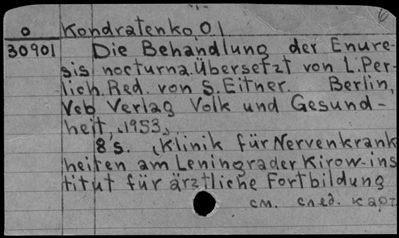 o Kondratenko, O I
30901 Die Behandlung der Enure-
sis nocturna. Übersetzt von L. Per-
lich. Red. von S. Eitner. Berlin,
Veb Verlag Volk und Gesund-
heit, 1953,
8 s. (Klinik für Nervenkrank
heiten am Leningrader Kirow-ins
titut für ärztliche Fortbildung
см. след. карт